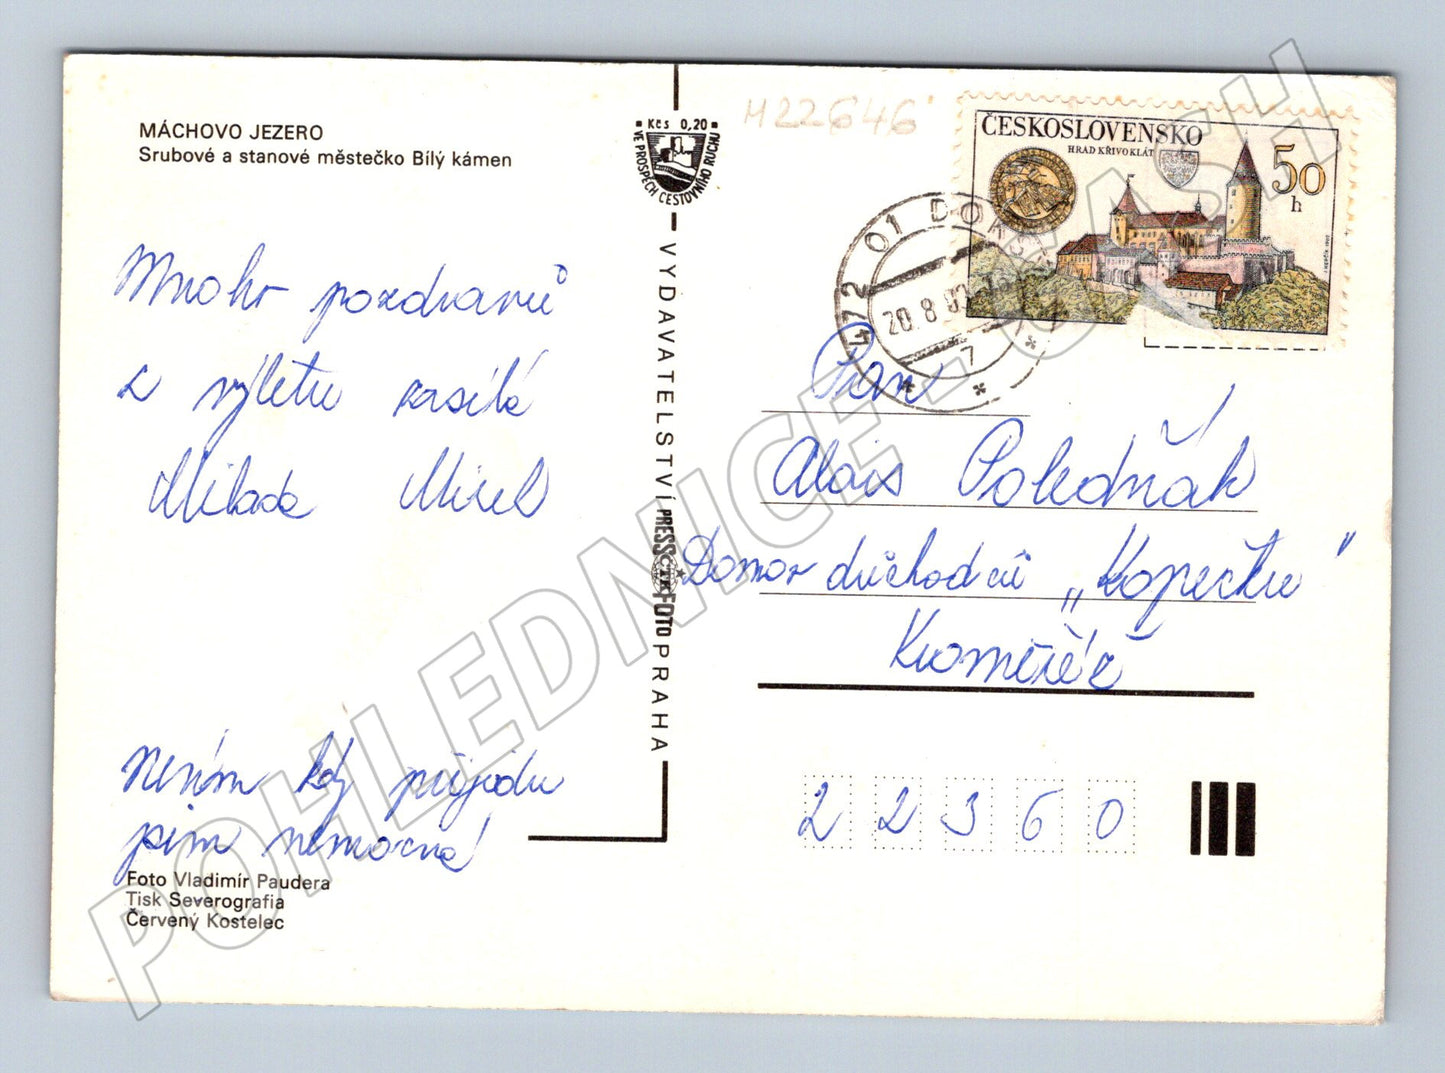 MÁCHOVO JEZERO
Srubové a stanové městečko Bílý kámen
Mnoho pozdravů
z výletu zasílá
Milada Mirek
nevím kdy přijedu
jsim nemocná
Foto Vladimír Paudera
Tisk Severografia
Červený Kostelec
Kčs 0,20
VE PROSPĚCH CESTOVNÍHO RUCHU
VYDAVATELSTVÍ PRESSFOTO PRAHA
ČTK
M22646
ČESKOSLOVENSKO
HRAD KŘIVOKLÁT
50
h
472 01 DOKSY
20.8.83
7
Pan
Alois Poledňák
Domov důchodců „Kopečku"
Kroměříž
22360
POHLEDNICE - CASH